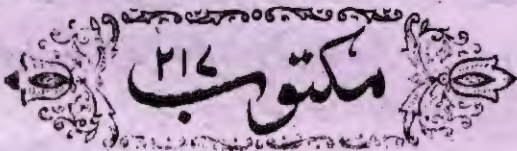 مکتوب ۲۱۷